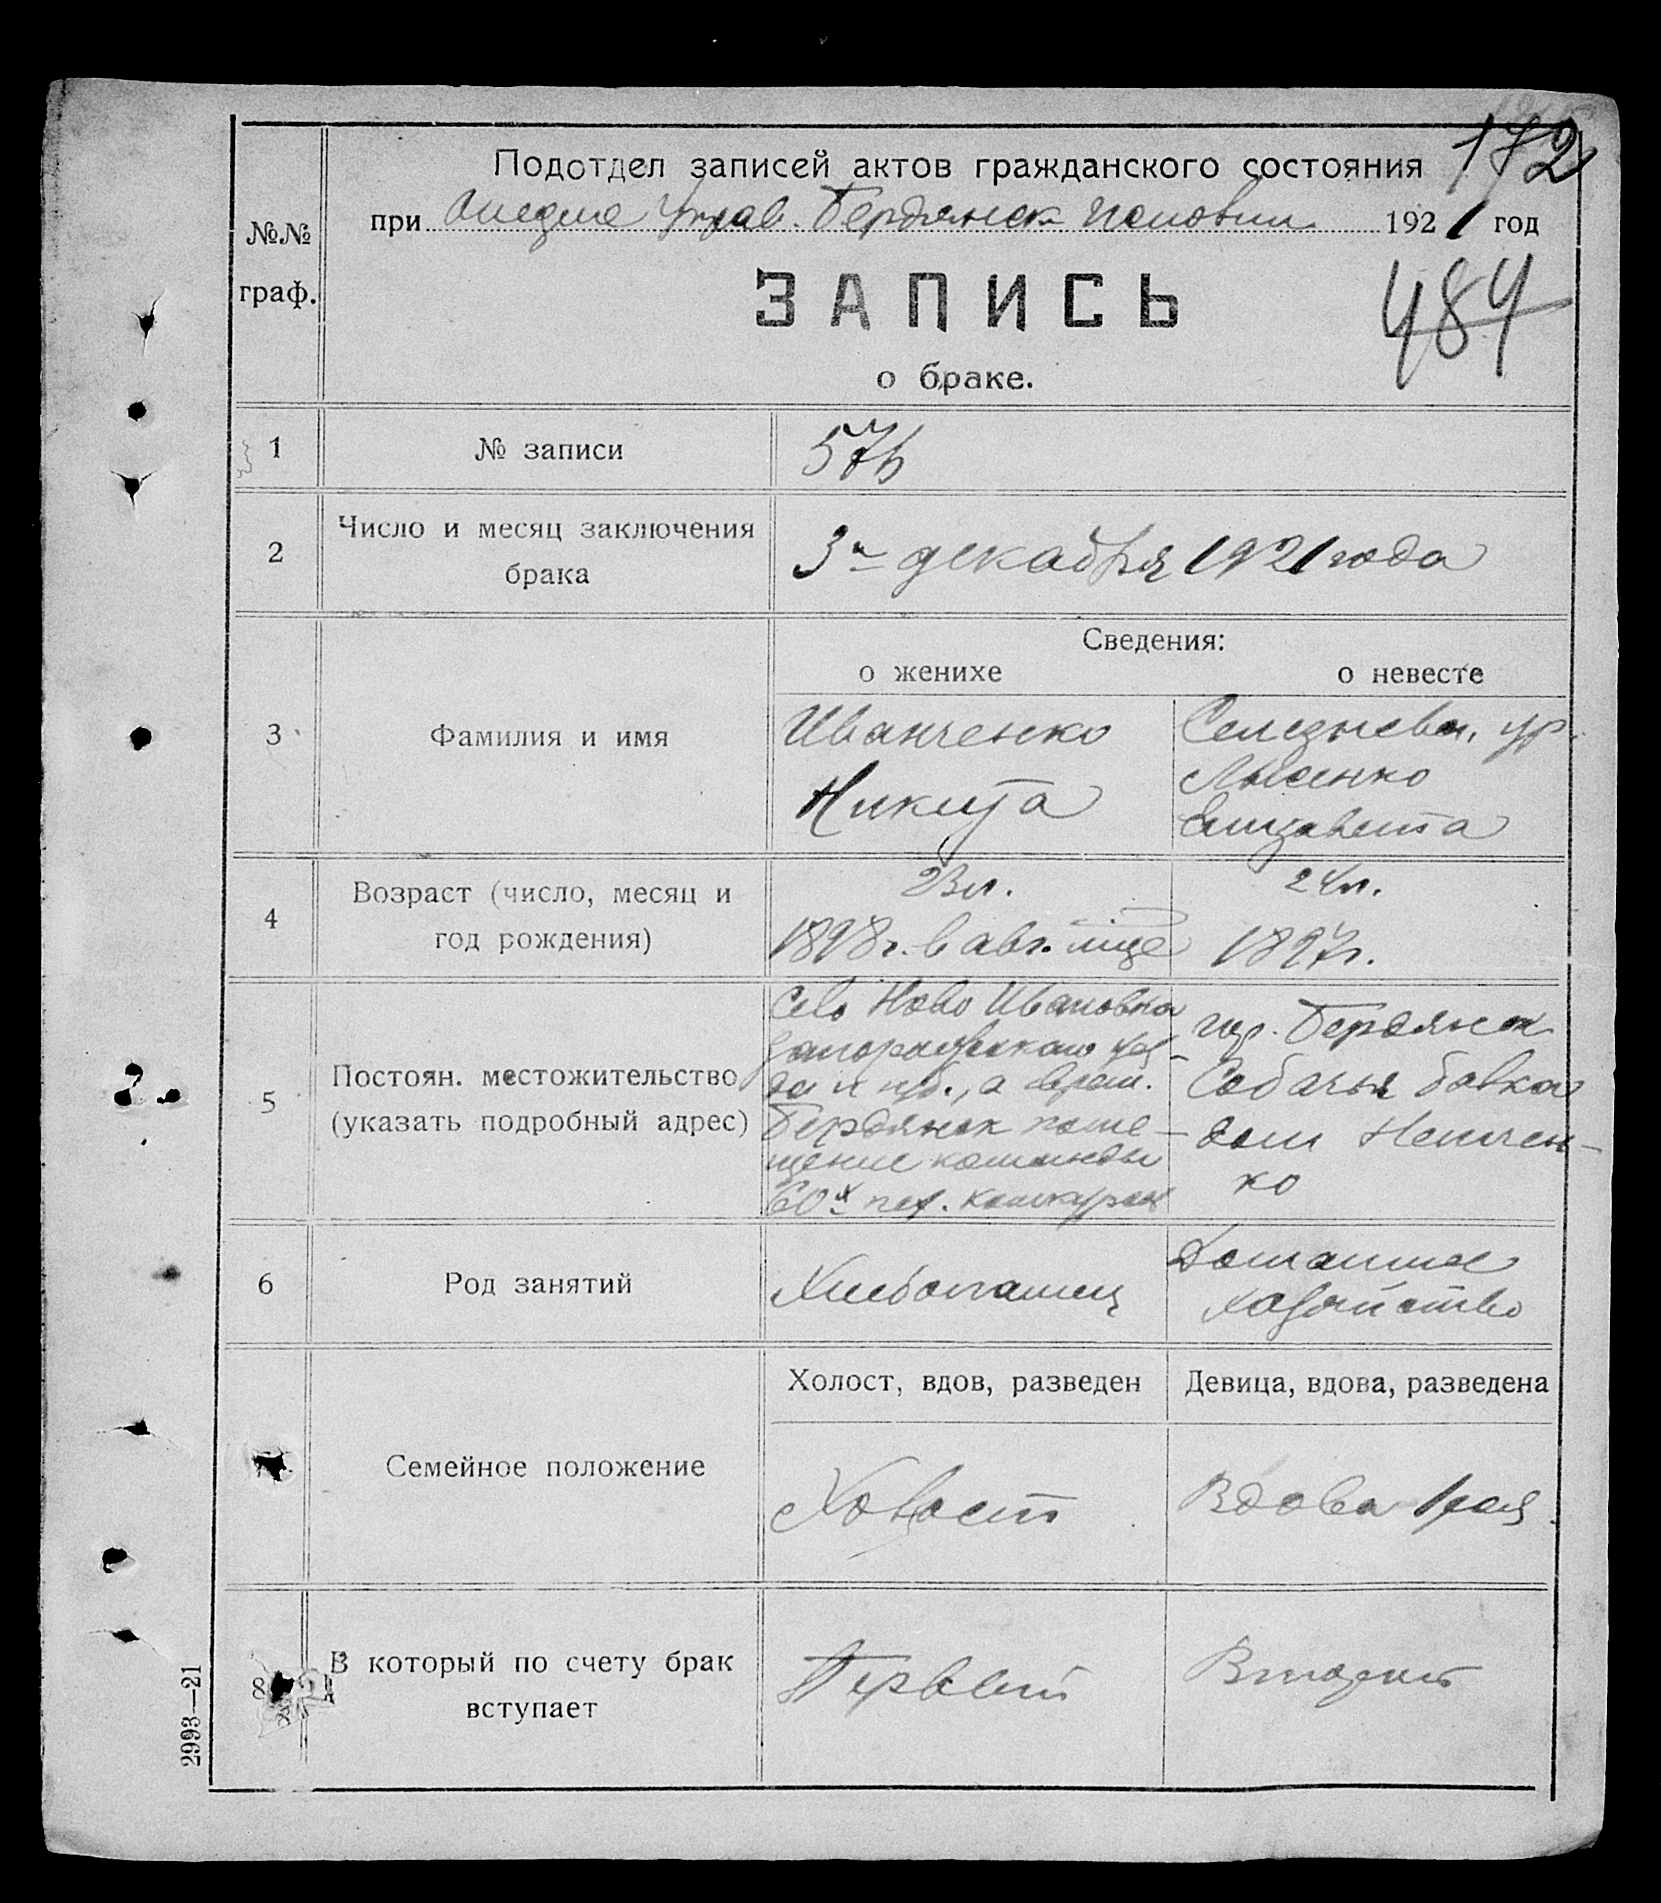 172
Подотдел записей актов гражданского состояния
при Отделе Управ. Бердянск исполком 1921 год
№№
граф.
484
ЗАПИСЬ
о браке.
1
№ записи
576
2
Число и месяц заключения
брака
3го декабря 1921 года
Сведения:
о женихе
о невесте
3
Фамилия и имя
Иванченко
Никита
Селезнева, ур.
Лысенко
Елизавета
4
Возраст (число, месяц и
год рождения)
23 л.
1898 г. в авг. м-це
24 л.
1897 г.
5
Постоян. местожительство
(указать подробный адрес)
Село Ново Ивановка
Запорожского уез-
да и губ., а врем.
Бердянск поме-
щение команды
60й
гор. Бердянск
Собачья балка
дом
ко
6
Род занятий
Хлебопашец
Домашнее
хозяйство
7
Семейное положение
Холост, вдов, разведен
Девица, вдова, разведена
Холост
Вдова
8
В который по счету брак
вступает
Первый
Второй
2993—21